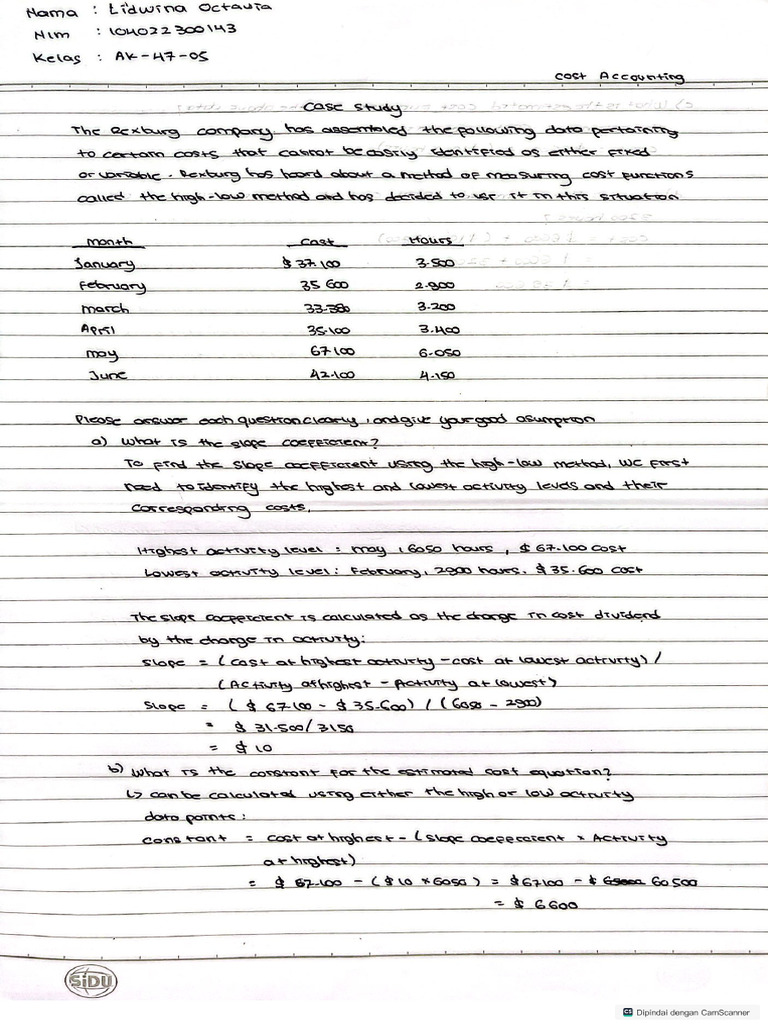 Nama : Lidwina Octavia
Nim : 104022300143
Kelas : AK-47-05
Cost Accounting
Case Study
The Rexburg company has assembled the following data pertaining
to certain costs that cannot be easily identified as either fixed
or variable. Rexburg has heard about a method of measuring cost functions
called the high-low method and has decided to use it in this situation
Month Cost Hours
January $ 37.100 3.500
February 35 600 2.900
March 33.380 3.200
April 35.100 3.400
May 67100 6.050
June 42.100 4.150
Please answer each question clearly, and give your good asumption
a) What is the slope coefficient?
To find the slope coefficient using the high-low method, we first
need to identify the highest and lowest activity levels and their
corresponding costs.
Highest activity level : May, 6050 hours, $ 67.100 cost
Lowest activity level : February, 2900 hours. $ 35.600 cost
The slope coefficient is calculated as the change in cost dividend
by the change in activity:
Slope = (cost at highest activity - cost at lowest activity) /
(Activity at highest - Activity at lowest)
Slope = ($ 67.100 - $ 35.600) / (6050 - 2900)
= $ 31.500/3150
= $ 10
b) What is the constant for the estimated cost equation?
↳ can be calculated using either the high or low activity
data points:
constant = cost at highest - (slope coefficient × Activity
at highest)
= $ 67.100 - ($ 10 × 6050) = $67100 - $ 60 500
= $ 6600
SiDU
CS Dipindai dengan CamScanner